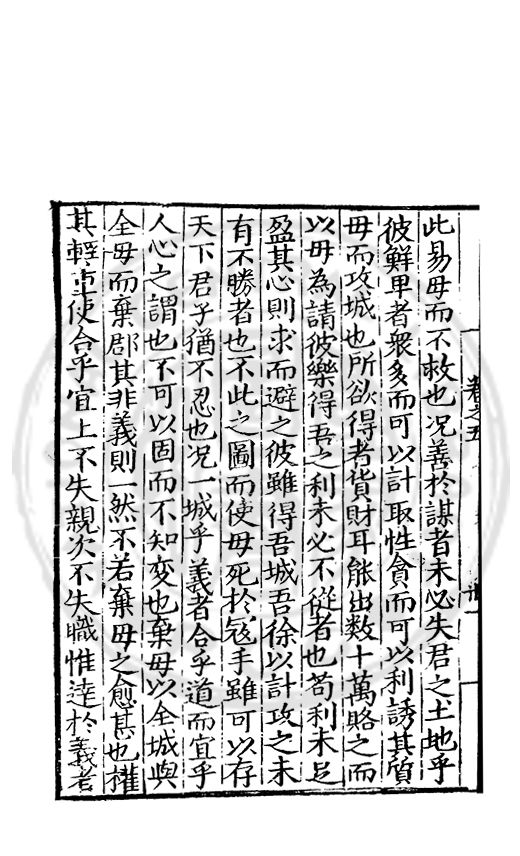 此易母而不救也况善於謀者未必失君之土地乎
彼鮮卑者衆多而可以計取性貪而可以利誘其質
母而攻城也所欲得者貨財耳能出数十萬賂之而
以母為請彼樂得吾之利未必不從者也苟利未足
盈其心則求而避之彼雖得吾城吾徐以計攻之未
有不勝者也不此之圖而使母死扵冦手雖可以存
天下君子猶不忍也况一城乎義者合乎道而宜乎
人心之謂也不可以固而不知变也棄母以全城與
全母而棄郡其非義則一然不若棄母之愈甚也權
其輕重使合乎宜上不失親次不失職惟達扵義者
卷之五